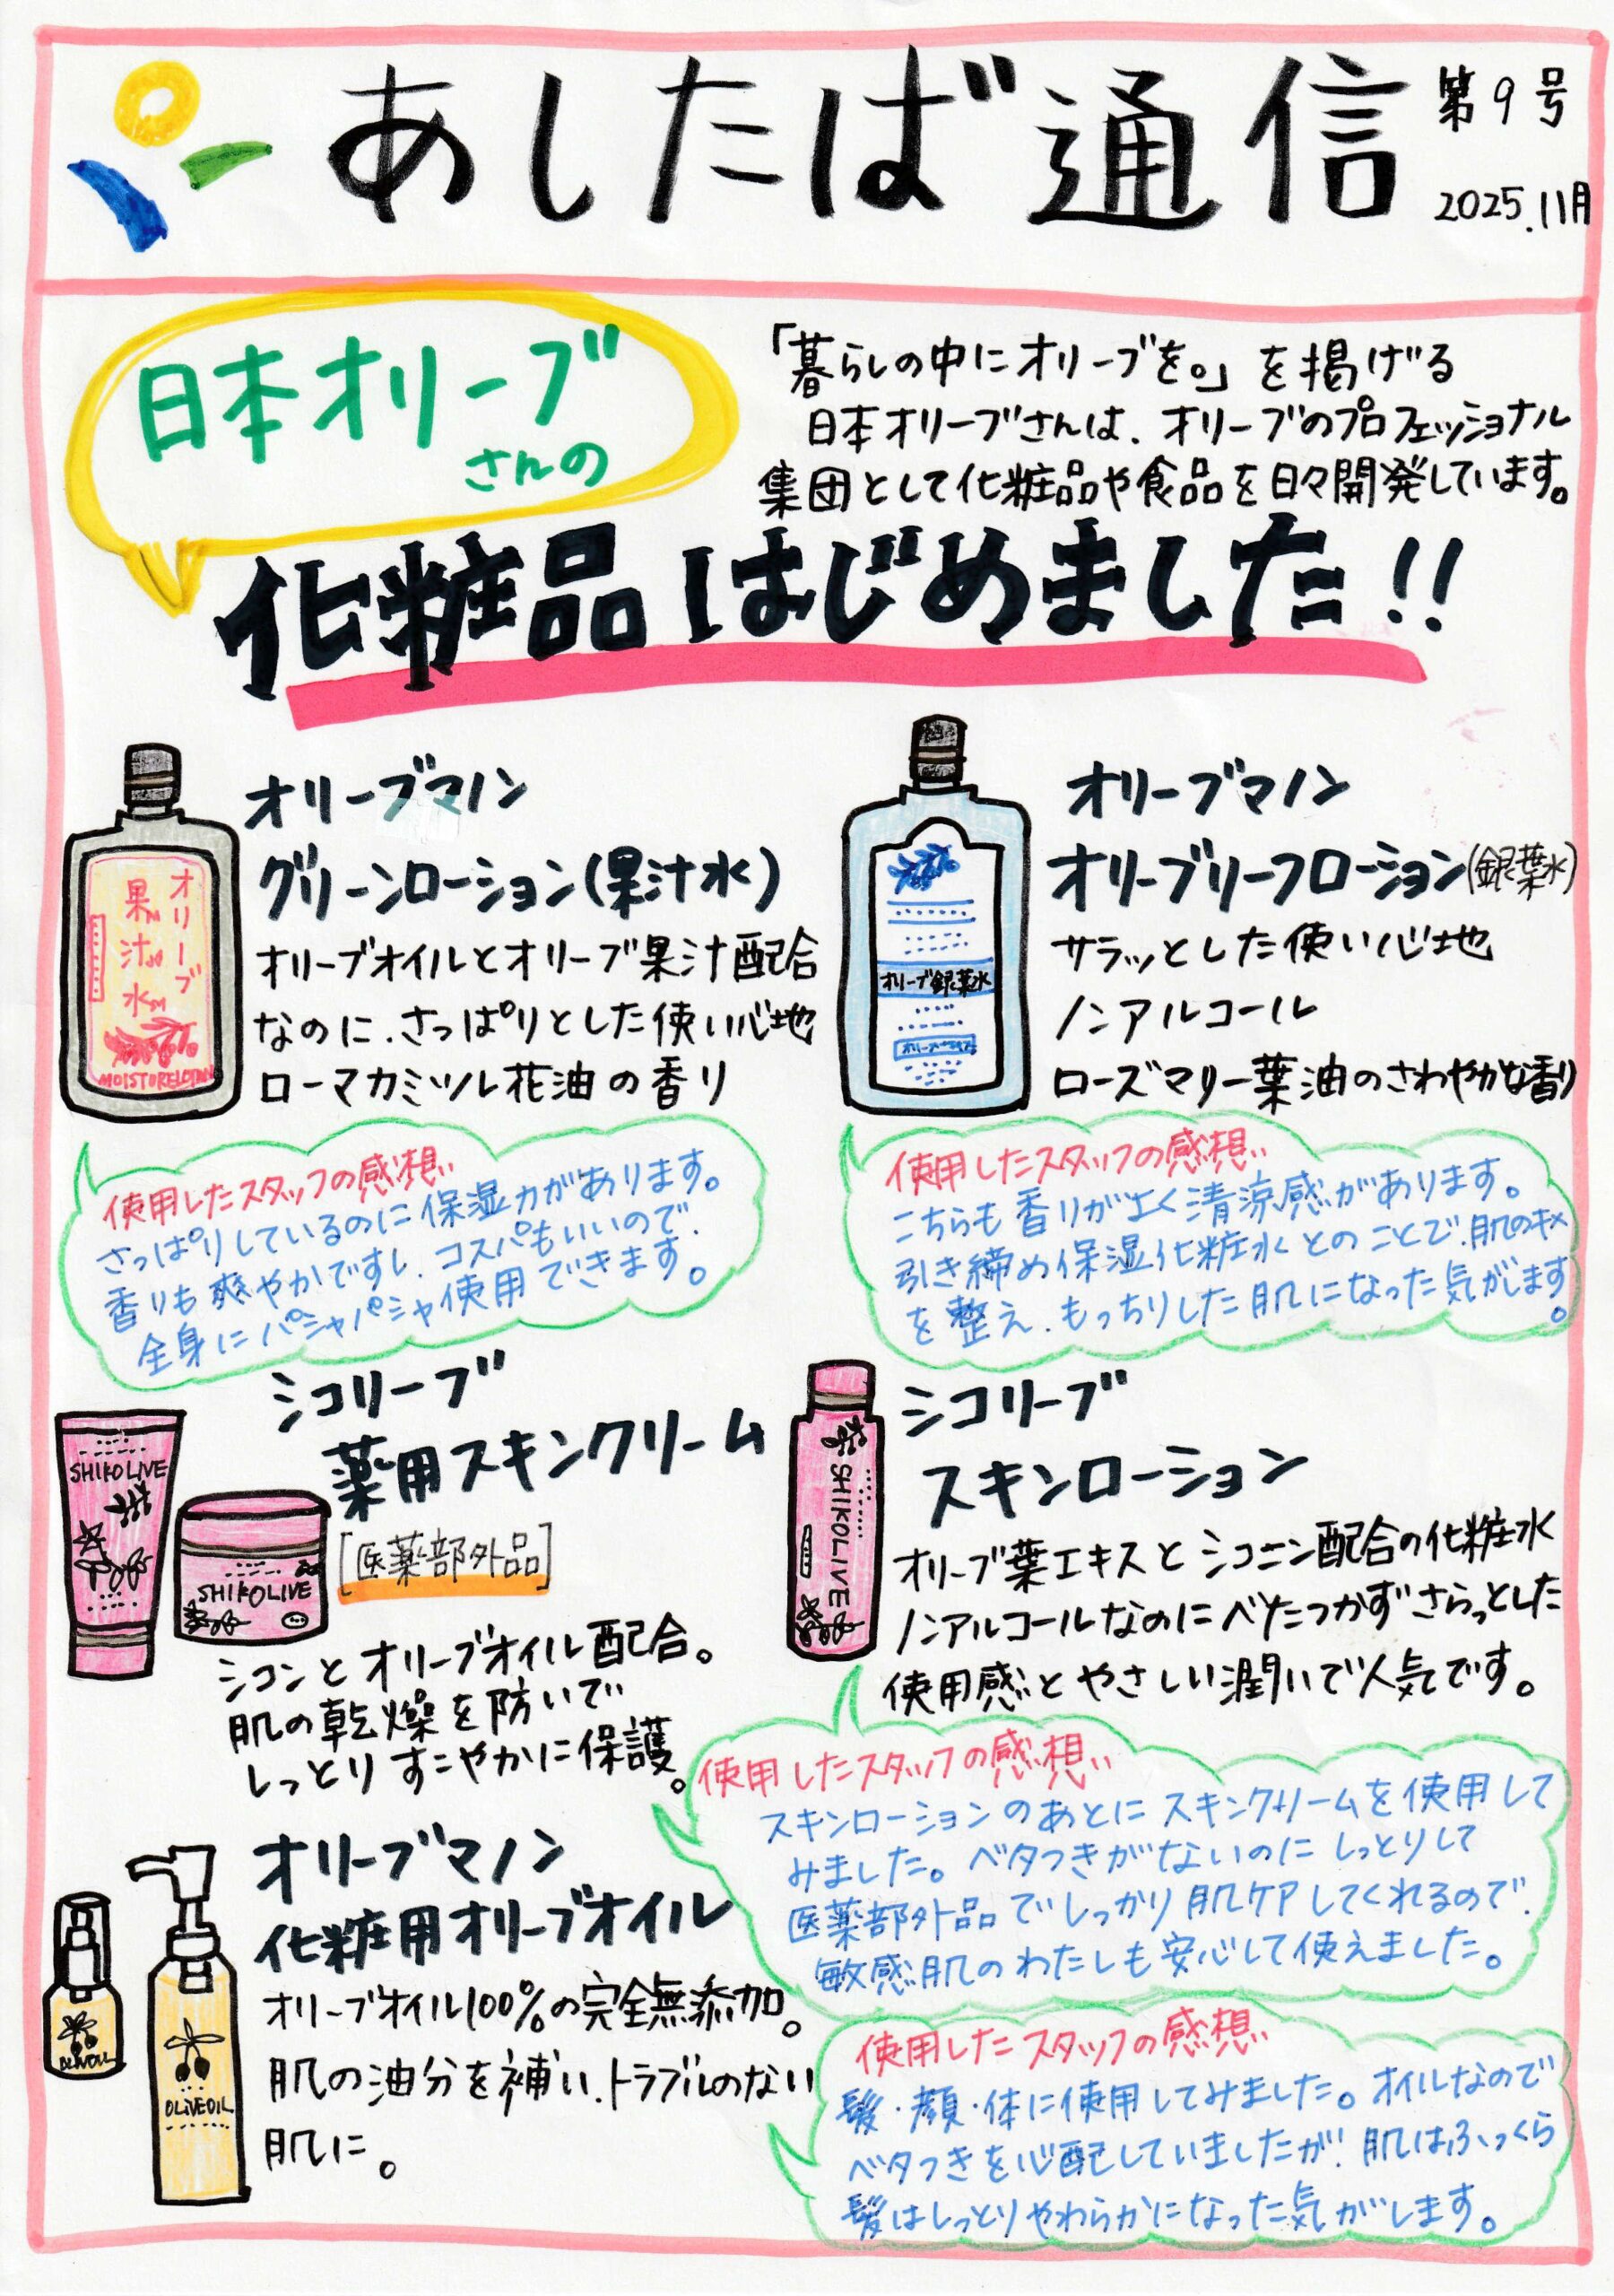 あしたば通信
第9号
2025.11月
日本オリーブ
さんの
「暮らしの中にオリーブを。」を掲げる
日本オリーブさんは、オリーブのプロフェッショナル
集団として化粧品や食品を日々開発しています。
化粧品はじめました!!
オリーブマノン
グリーンローション(果汁水)
オリーブオイルとオリーブ果汁配合
なのに、さっぱりとした使い心地
ローマカミツレ花油の香り
オリーブ
果汁水
MOISTURELOTION
使用したスタッフの感想..
さっぱりしているのに保湿力があります。
香りも爽やかですし、コスパもいいので、
全身にパシャパシャ使用できます。
オリーブマノン
オリーブリーフローション(銀葉水)
サラッとした使い心地
ノンアルコール
ローズマリー葉油のさわやかな香り
オリーブ銀葉水
使用したスタッフの感想..
こちらも香りがよく清涼感があります。
引き締め保湿化粧水とのことで、肌のキメ
を整え、もっちりした肌になった気がします。
シコリーブ
薬用スキンクリーム
[医薬部外品]
シコンとオリーブオイル配合。
肌の乾燥を防いで
しっとりすこやかに保護。
SHIKOLIVE
SHIKOLIVE
シコリーブ
スキンローション
オリーブ葉エキスとシコニン配合の化粧水
ノンアルコールなのにべたつかずさらっとした
使用感とやさしい潤いで人気です。
SHIKOLIVE
使用したスタッフの感想..
スキンローションのあとにスキンクリームを使用して
みました。ベタつきがないのにしっとりして
医薬部外品でしっかり肌ケアしてくれるので、
敏感肌のわたしも安心して使えました。
オリーブマノン
化粧用オリーブオイル
オリーブオイル100%の完全無添加。
肌の油分を補い、トラブルのない
肌に。
OLIVEOIL
OLIVEOIL
使用したスタッフの感想..
髪・顔・体に使用してみました。オイルなので
ベタつきを心配していましたが、肌はふっくら
髪はしっとりやわらかになった気がします。